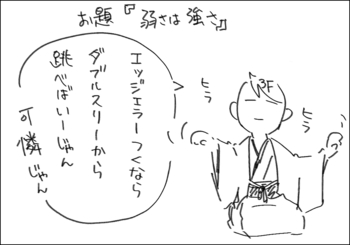 お題『弱さは強さ』
エッジエラーつくなら
ダブルスリーから
跳べばいーじゃん
可憐じゃん
3F
ヒラ
ヒラ